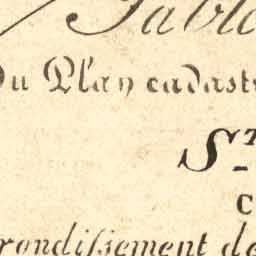 Table
Du Plan cadast
ST
C
rondissement de